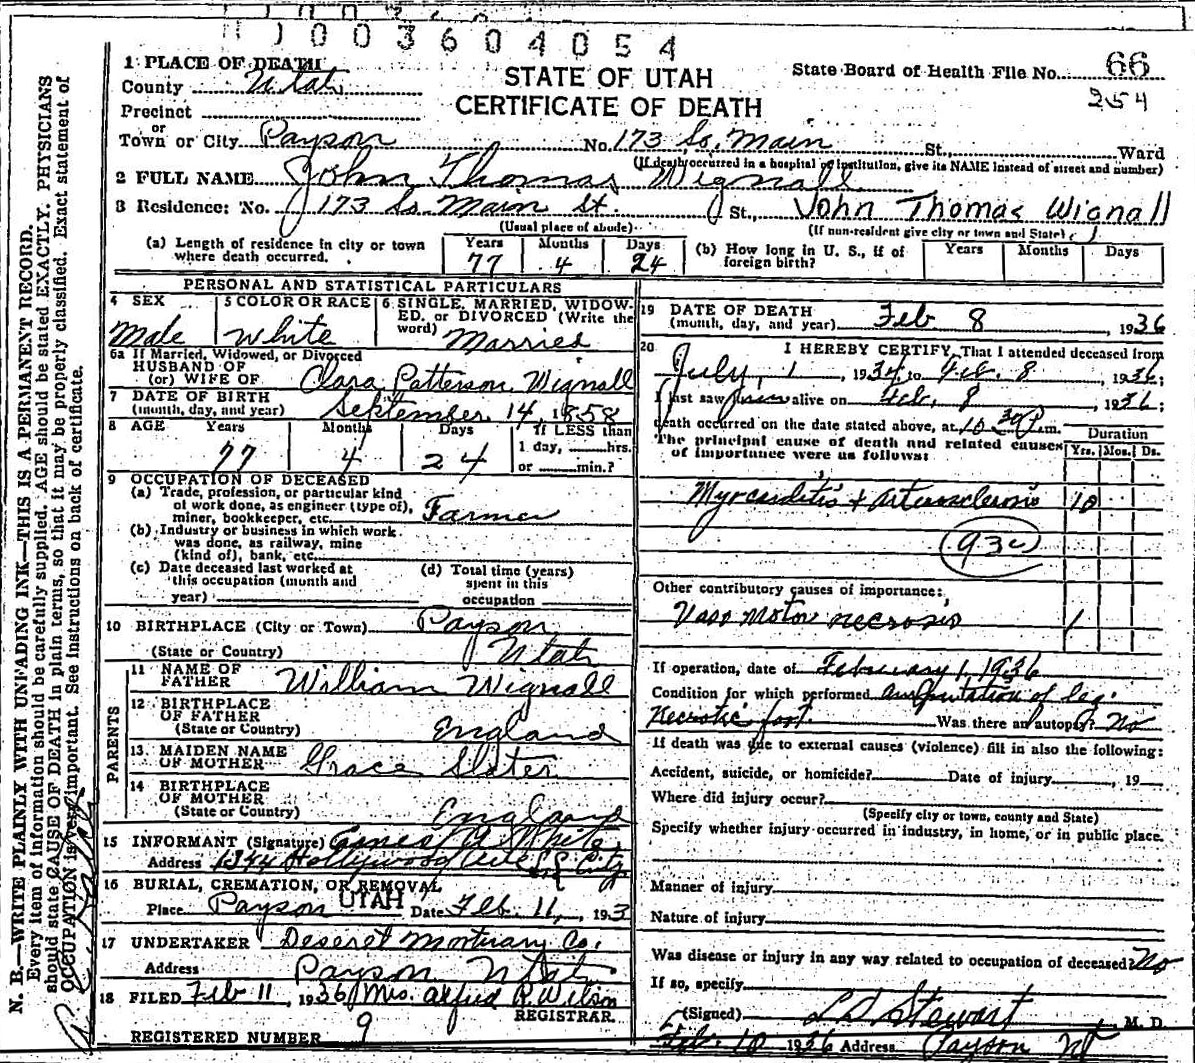 11003604054
STATE OF UTAH
CERTIFICATE OF DEATH
State Board of Health File No. 66
254
1 PLACE OF DEATH
County Utah
Precinct
or
Town or City Payson No. 173 So. Main St., Ward
(If death occurred in a hospital or institution, give its NAME instead of street and number)
2 FULL NAME John Thomas Wignall
3 Residence: No. 173 So. Main St. St., John Thomas Wignall
(Usual place of abode) (If non-resident give city or town and State)
(a) Length of residence in city or town where death occurred. Years 77 Months 4 Days 24
(b) How long in U. S., if of foreign birth? Years Months Days
PERSONAL AND STATISTICAL PARTICULARS
4 SEX Male
5 COLOR OR RACE White
6 SINGLE, MARRIED, WIDOWED, or DIVORCED (Write the word) Married
6a If Married, Widowed, or Divorced
HUSBAND OF
(or) WIFE OF Clara Patterson Wignall
7 DATE OF BIRTH
(month, day, and year) September 14, 1858
8 AGE Years 77 Months 4 Days 24 If LESS than 1 day, hrs. or min.?
9 OCCUPATION OF DECEASED
(a) Trade, profession, or particular kind
of work done, as engineer (type of),
miner, bookkeeper, etc. Farmer
(b) Industry or business in which work
was done, as railway, mine
(kind of), bank, etc.
(c) Date deceased last worked at
this occupation (month and
year)
(d) Total time (years)
spent in this
occupation
10 BIRTHPLACE (City or Town) Payson
(State or Country) Utah
PARENTS
11 NAME OF
FATHER William Wignall
12 BIRTHPLACE
OF FATHER
(State or Country) England
13 MAIDEN NAME
OF MOTHER Grace Slater
14 BIRTHPLACE
OF MOTHER
(State or Country) England
15 INFORMANT (Signature) White
Address 1344 Hollywood Ave S L City
16 BURIAL, CREMATION, OR REMOVAL
Place Payson UTAH Date Feb. 11, 193
17 UNDERTAKER Deseret Mortuary Co.
Address Payson Utah
18 FILED Feb 11, 1936 Mrs. Alfred R. Wilson
REGISTRAR.
REGISTERED NUMBER 9
19 DATE OF DEATH
(month, day, and year) Feb 8, 1936
20 I HEREBY CERTIFY, That I attended deceased from
July, 1, 1934, to Feb. 8, 1936;
I last saw him alive on Feb. 8, 1936;
death occurred on the date stated above, at 10 30 P m.
The principal cause of death and related causes
of importance were as follows:
Duration
Yrs. Mos. Ds.
Myocarditis & Arteriosclerosis 10
93c
Other contributory causes of importance:
Vaso Motor necrosis 1
If operation, date of February 1, 1936
Condition for which performed amputation of leg.
Necrotic foot. Was there an autopsy? No
If death was due to external causes (violence) fill in also the following:
Accident, suicide, or homicide? Date of injury, 19
Where did injury occur?
(Specify city or town, county and State)
Specify whether injury occurred in industry, in home, or in public place.
Manner of injury
Nature of injury
Was disease or injury in any way related to occupation of deceased? No
If so, specify
(Signed) L D Stewart M. D.
Feb. 10 1936 Address Payson Ut
N. B.—WRITE PLAINLY WITH UNFADING INK—THIS IS A PERMANENT RECORD.
Every item of information should be carefully supplied. AGE should be stated EXACTLY. PHYSICIANS
should state CAUSE OF DEATH in plain terms, so that it may be properly classified. Exact statement of
OCCUPATION is very important. See instructions on back of certificate.